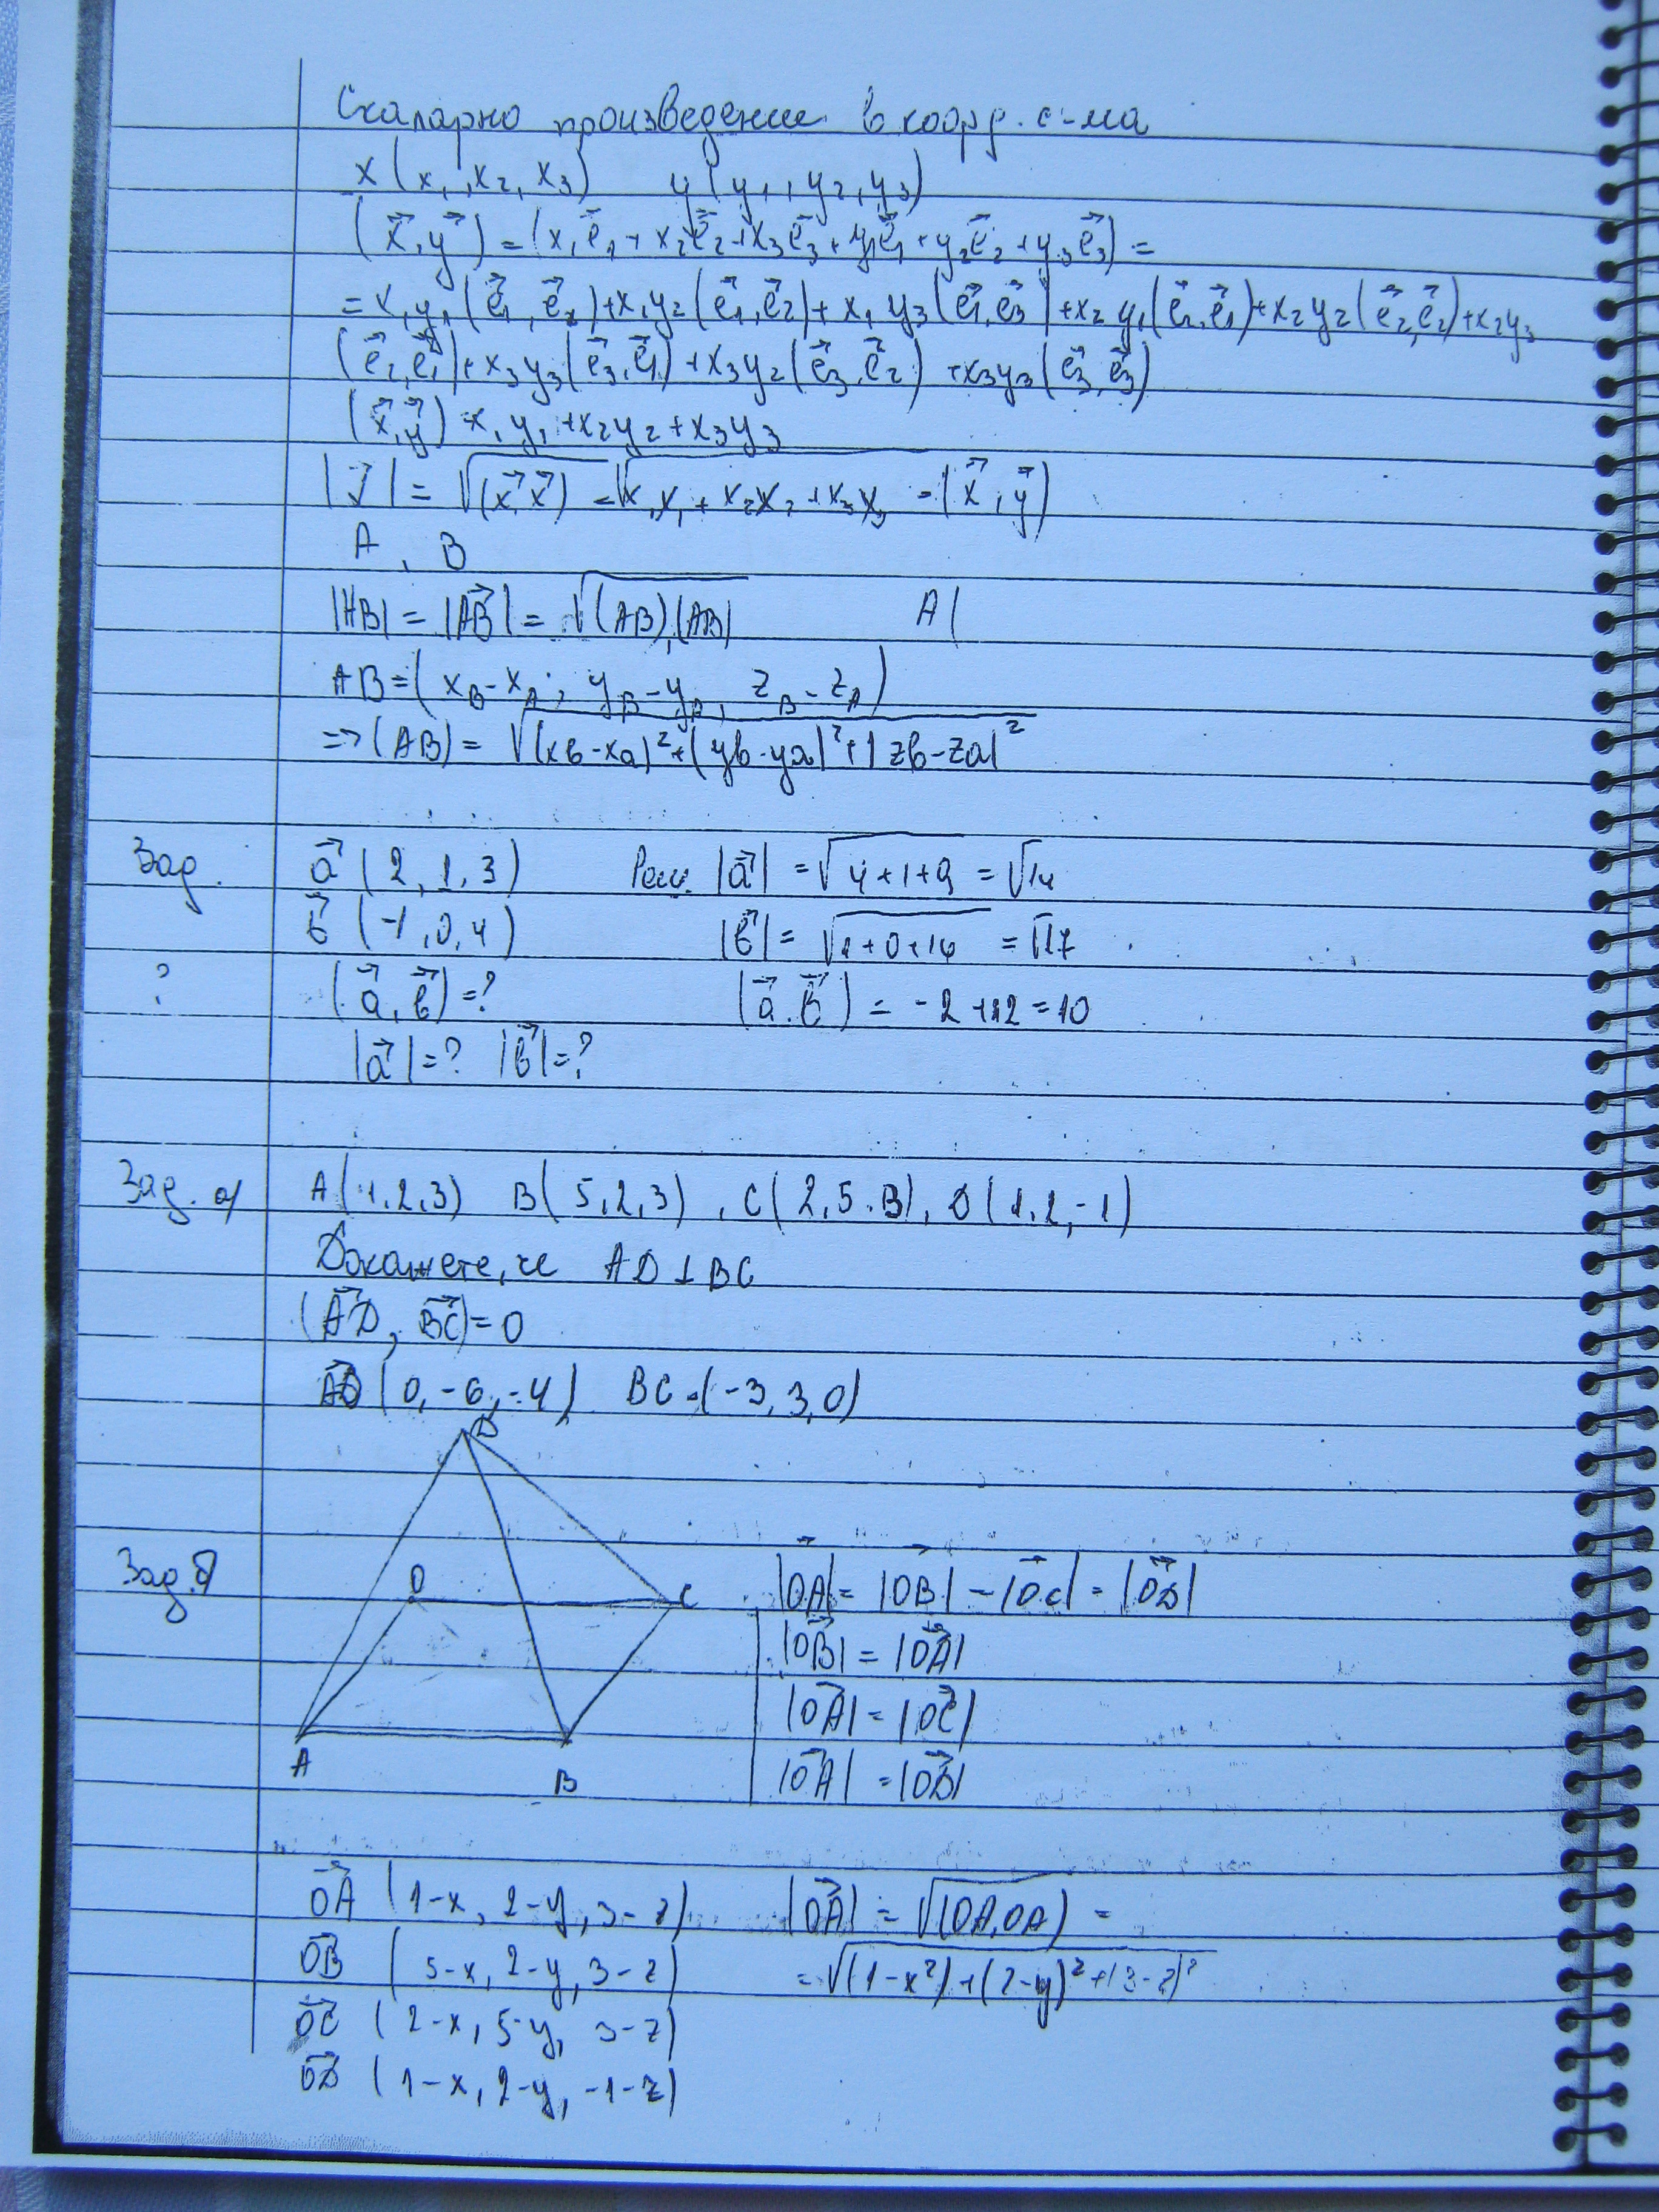 Скаларно произведение в коорд. с-ма
x (x₁, x₂, x₃) y (y₁, y₂, y₃)
(x⃗, y⃗) = (x₁e⃗₁ + x₂e⃗₂ + x₃e⃗₃ + y₁e⃗₁ + y₂e⃗₂ + y₃e⃗₃) =
= x₁y₁(e⃗₁, e⃗₁) + x₁y₂(e⃗₁, e⃗₂) + x₁y₃(e⃗₁, e⃗₃) + x₂y₁(e⃗₂, e⃗₁) + x₂y₂(e⃗₂, e⃗₂) + x₂y₃
(e⃗₂, e⃗₁) + x₃y₃(e⃗₃, e⃗₁) + x₃y₂(e⃗₃, e⃗₂) + x₃y₃(e⃗₃, e⃗₃)
(x⃗, y⃗) = x₁y₁ + x₂y₂ + x₃y₃
= √(x⃗, x⃗) = √x₁x₁ + x₂x₂ + x₃x₃ = (x⃗, y⃗)
A, B
|AB| = |AB⃗| = √(AB),(AB) A(
AB = (xB - xA; yB - yA, zB - zA)
=> (AB) = √(xb - xa)² + (yb - ya)² + (zb - za)²
Зад. a⃗ (2, 1, 3) Реш. |a⃗| = √4+1+9 = √14
в⃗ (-1, 0, 4) |в⃗| = √1+0+16 = √17
? (a⃗, в⃗) = ? (a⃗.в⃗) = -2+12 = 10
|a⃗| = ? |в⃗| = ?
Зад. а/ A(1,2,3) B(5,2,3), C(2,5.B), D(1,2,-1)
Докажете, че AD ⊥ BC
(AD⃗, BC⃗) = 0
AD⃗ (0, -6, -4) BC = (-3, 3, 0)
D
Зад. б O C |OA⃗| = |OB⃗| = |OC⃗| = |OD⃗|
|OB⃗| = |OA⃗|
|OA⃗| = |OC⃗|
A B |OA⃗| = |OD⃗|
OA⃗ (1-x, 2-y, 3-z) |OA⃗| = √(OA, OA) =
OB⃗ (5-x, 2-y, 3-z) = √(1-x²) + (2-y)² + (3-z)²
OC⃗ (2-x, 5-y, 3-z)
OD⃗ (1-x, 2-y, -1-z)